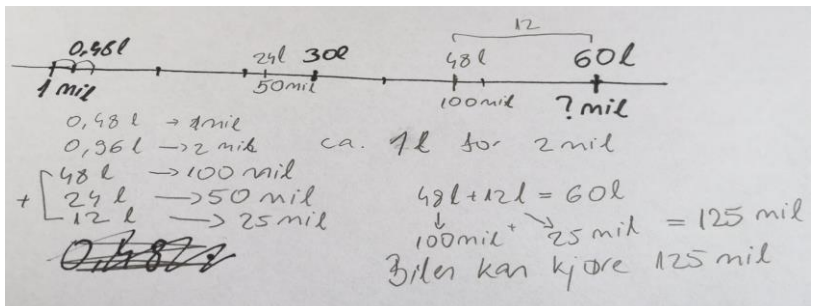 12
0,48l 24l 30l 48l 60l
1 mil 50mil 100mil ? mil
0,48 l → 1mil
0,96 l → 2 mil ca. 1l for 2 mil
48 l → 100 mil
+ 24 l → 50 mil 48l + 12l = 60l
12 l → 25 mil ↓ ↘
100mil + 25 mil = 125 mil
0,48
Bilen kan kjøre 125 mil